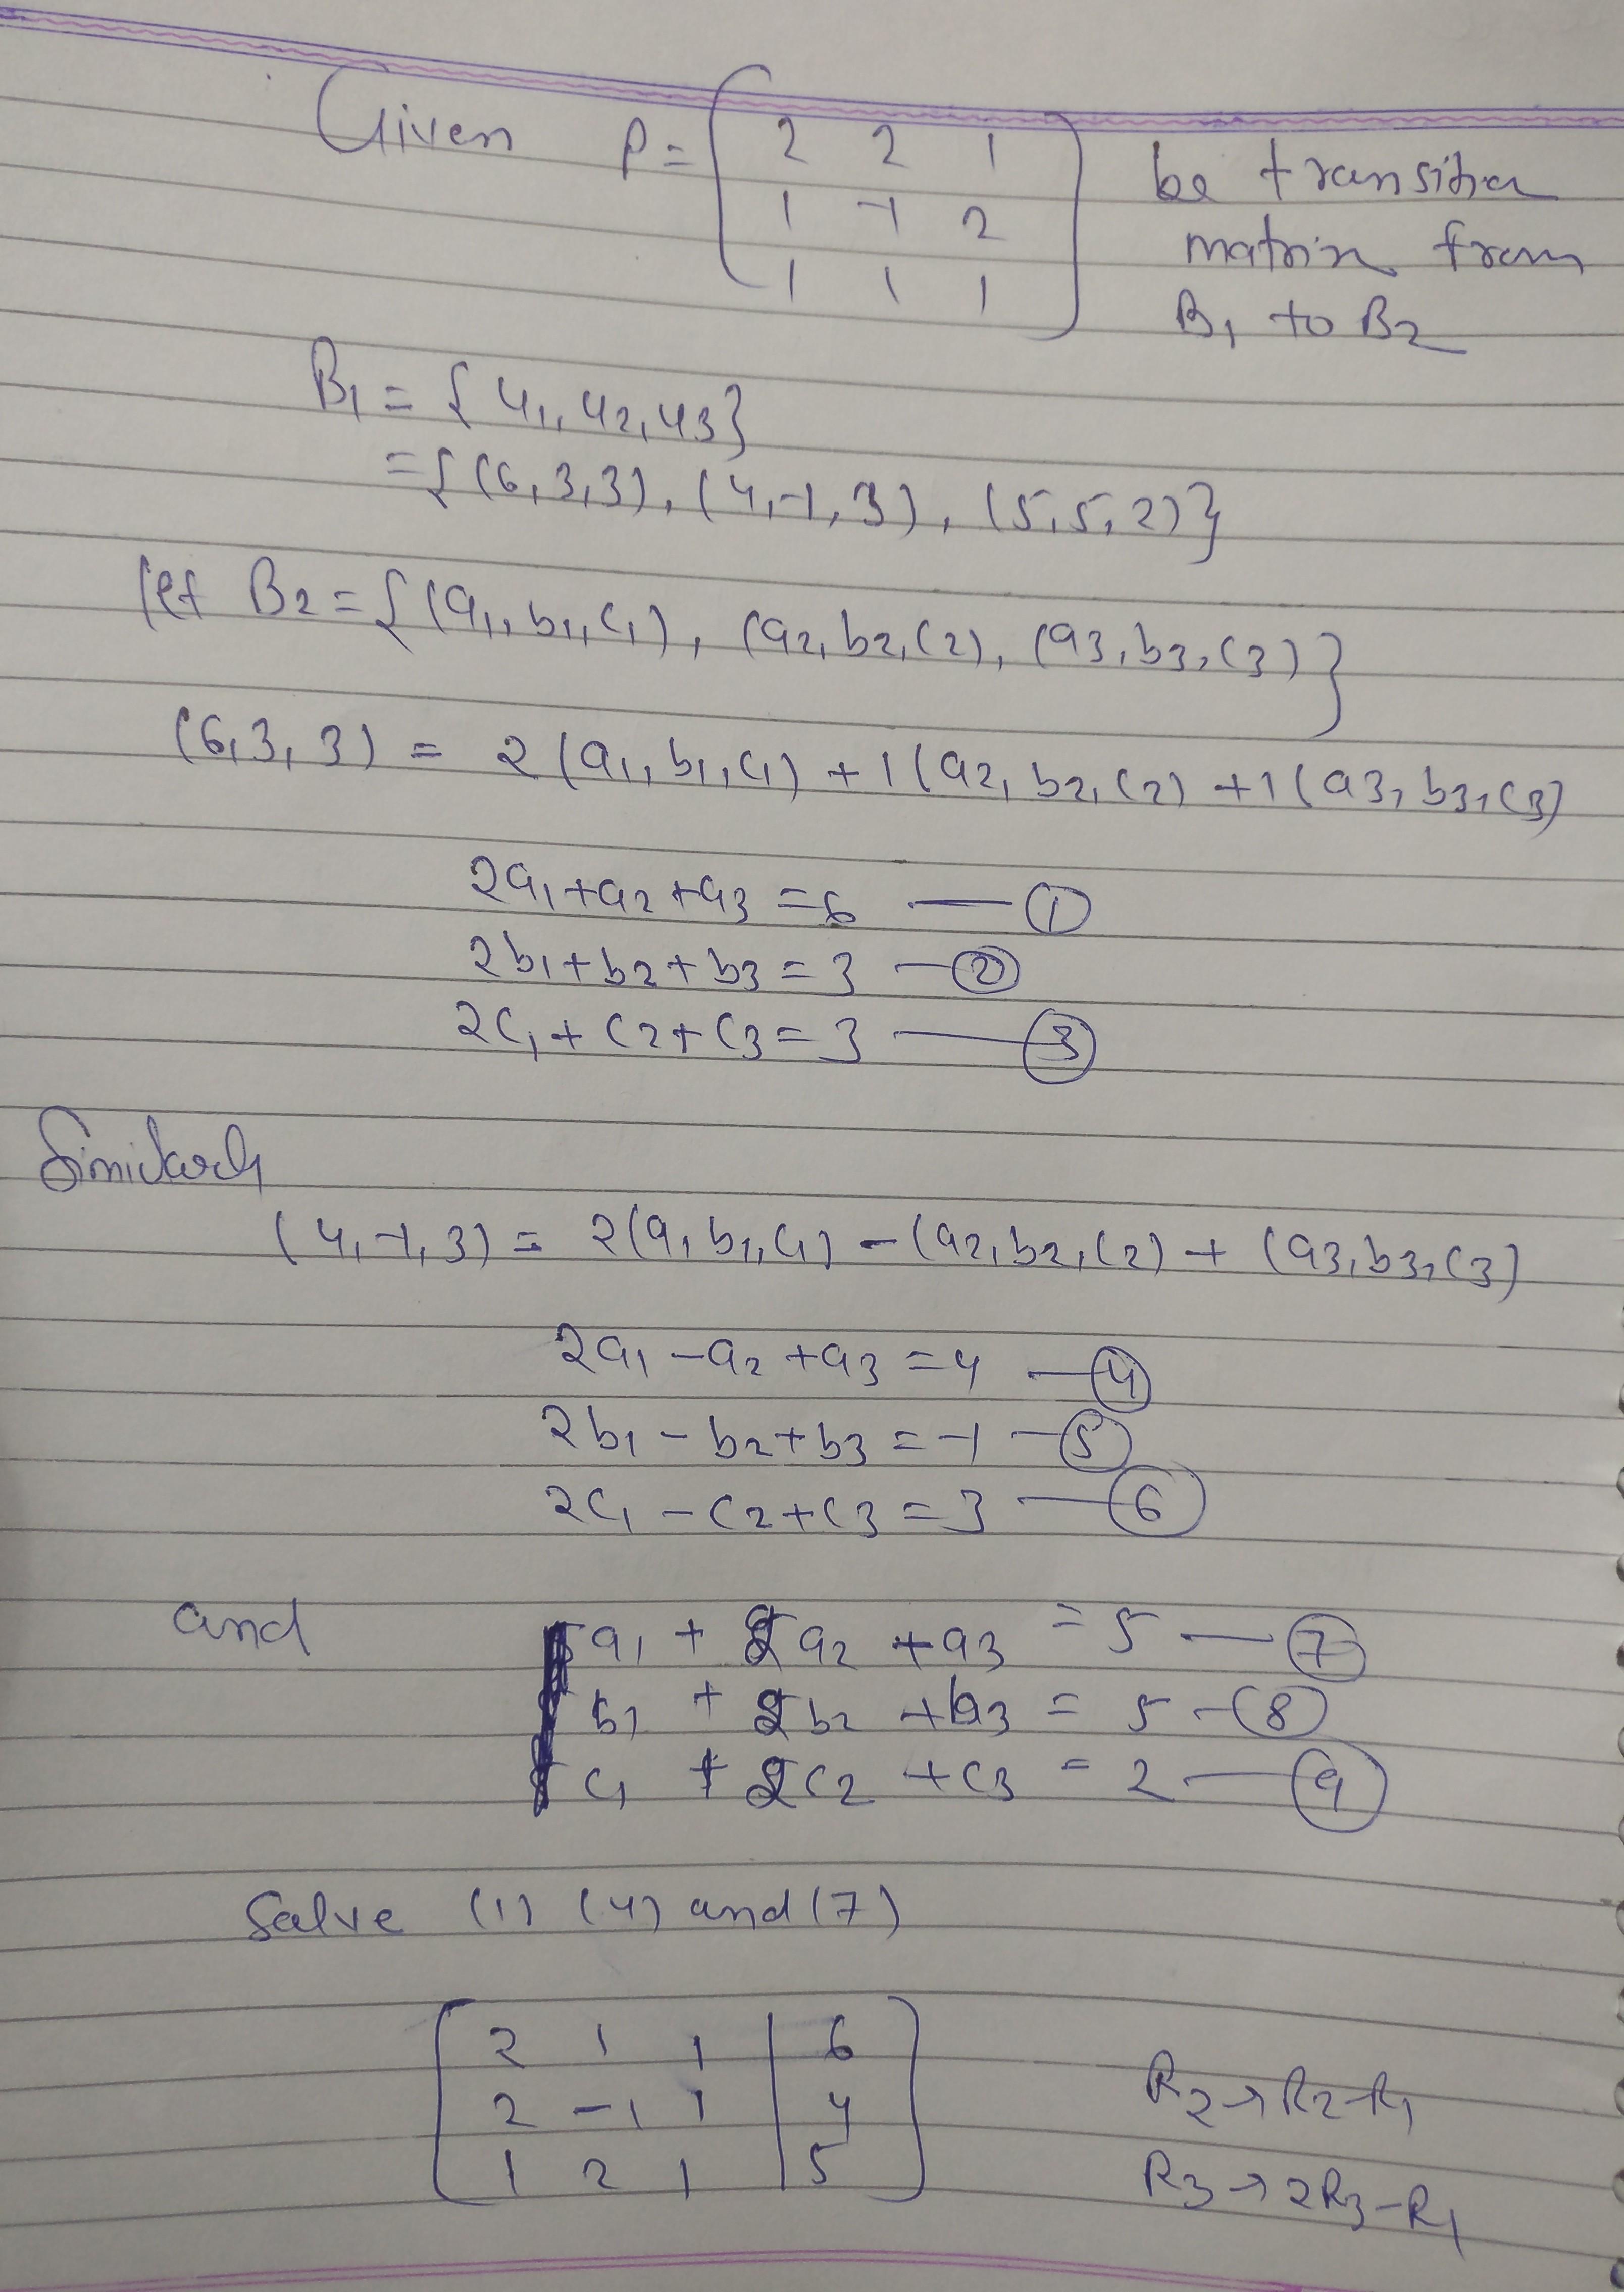 Given P = ( 2 2 1 be transition
1 -1 2 matrix from
1 1 1 ) B1 to B2
B1 = {u1, u2, u3}
= {(6, 3, 3), (4, -1, 3), (5, 5, 2)}
let B2 = {(a1, b1, c1), (a2, b2, c2), (a3, b3, c3)}
(6, 3, 3) = 2(a1, b1, c1) + 1(a2, b2, c2) + 1(a3, b3, c3)
2a1 + a2 + a3 = 6 — ①
2b1 + b2 + b3 = 3 — ②
2c1 + c2 + c3 = 3 — ③
Similarly
(4, -1, 3) = 2(a1 b1, c1) - (a2, b2, c2) + (a3, b3, c3)
2a1 - a2 + a3 = 4 — ④
2b1 - b2 + b3 = -1 — ⑤
2c1 - c2 + c3 = 3 — ⑥
and a1 + 2a2 + a3 = 5 — ⑦
b1 + 2b2 + b3 = 5 — ⑧
c1 + 2c2 + c3 = 2 — ⑨
Solve (1) (4) and (7)
[ 2 1 1 | 6
2 -1 1 | 4 R2→R2-R1
1 2 1 | 5 ] R3→2R3-R1